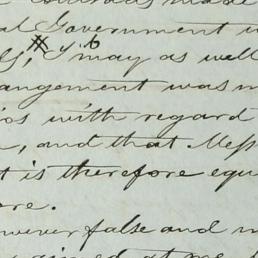 made
al Government
I may as well
angement was
ios with regard
, and that Mess
t is therefore equ
ere.
wever false and
gined at me